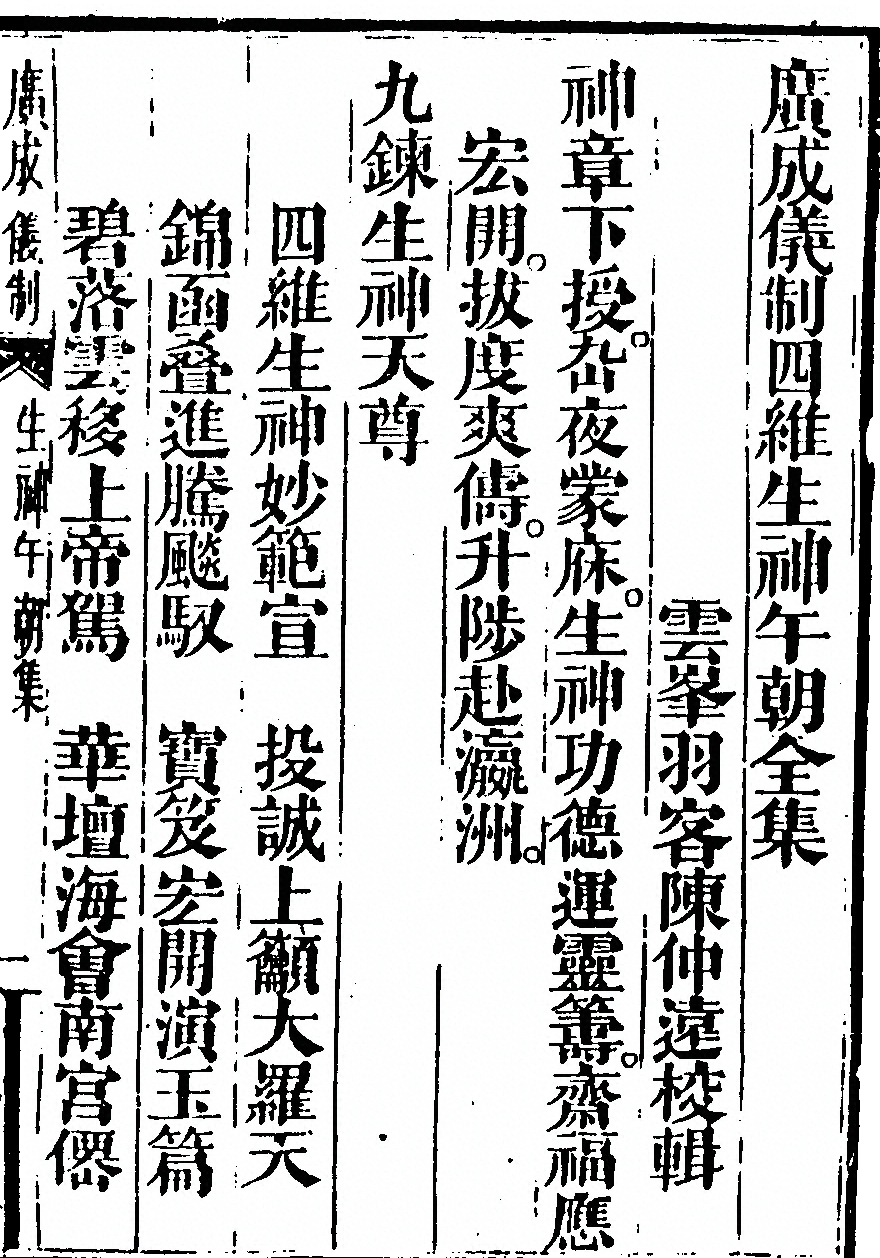 廣成儀制四維生神午朝全集
雲峯羽客陳仲遠校輯
神章下授。厼夜蒙庥。生神功德運靈籌。齋福應
宏開。拔度爽儔。升陟赴瀛洲。
九鍊生神天尊
四維生神妙範宣　投誠上籲大羅天
錦函叠進騰飈馭　寶笈宏開演玉篇
碧落雲移上帝駕　華壇海會南宮僊
廣成儀制　生神午朝集　一